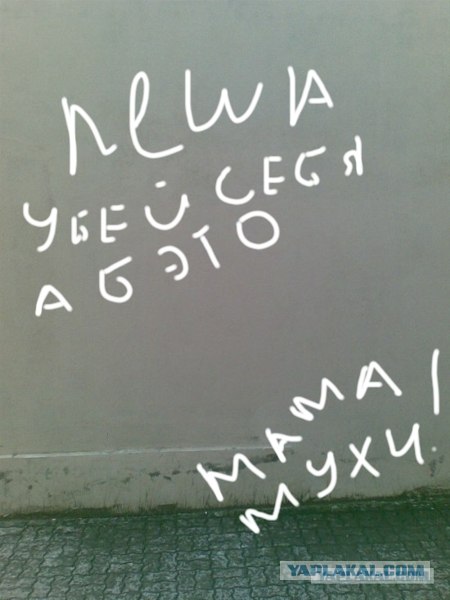 ЛЕША
УБЕЙ СЕБЯ
АБЭТО
МАМА
МУХИ!
YAPLAKAL.COM